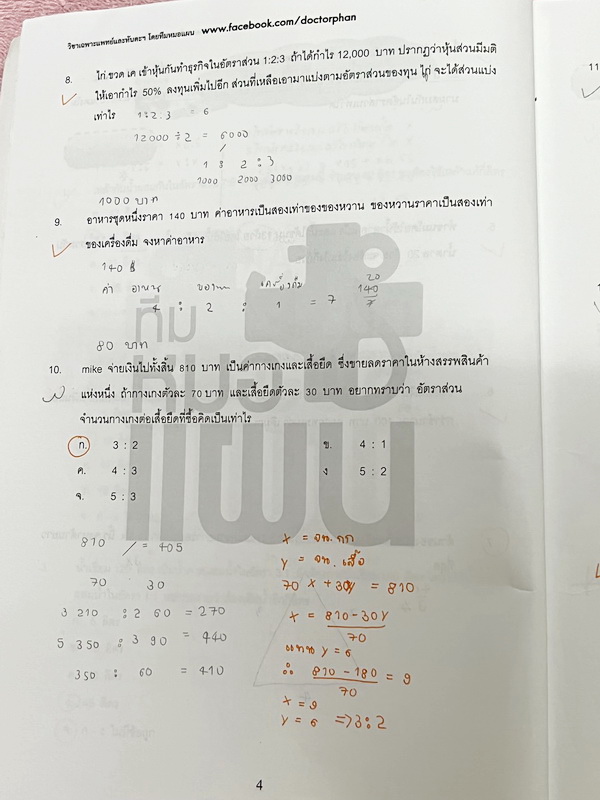 วิชาเฉพาะแพทย์และทันตะฯ โดยทีมหมอแผน www.facebook.com/doctorphan
8. ไก่.ขวด เค เข้าหุ้นกันทำธุรกิจในอัตราส่วน 1:2:3 ถ้าได้กำไร 12,000 บาท ปรากฏว่าหุ้นส่วนมีมติ
ให้เอากำไร 50% ลงทุนเพิ่มไปอีก ส่วนที่เหลือเอามาแบ่งตามอัตราส่วนของทุน ไก่ จะได้ส่วนแบ่ง
เท่าไร 1:2.3 = 6
12000 ÷ 2 = 6000
1 : 2 : 3
1000 2000 3000
1000 บาท
9. อาหารชุดหนึ่งราคา 140 บาท ค่าอาหารเป็นสองเท่าของของหวาน ของหวานราคาเป็นสองเท่า
ของเครื่องดื่ม จงหาค่าอาหาร
140 ฿
ค่า อาหาร ของหวาน เครื่องดื่ม
4 : 2 : 1 = 7
20
140
7
80 บาท
ทีม
หมอ
แผน
10. mike จ่ายเงินไปทั้งสิ้น 810 บาท เป็นค่ากางเกงและเสื้อยืด ซึ่งขายลดราคาในห้างสรรพสินค้า
แห่งหนึ่ง ถ้ากางเกงตัวละ 70 บาท และเสื้อยืดตัวละ 30 บาท อยากทราบว่า อัตราส่วน
จำนวนกางเกงต่อเสื้อยืดที่ซื้อคิดเป็นเท่าไร
ก. 3 : 2 ข. 4 : 1
ค. 4 : 3 ง 5 : 2
จ. 5 : 3
810 / = 405
70 30
3 210 : 2 60 = 270
5 350 : 3 90 = 440
350 : 60 = 410
x = จน.กก
y = จน.เสื้อ
70 x + 30y = 810
x = 810-30y
70
แทน y = 6
∴ 810 - 180 = 9
70
x = 9
y = 6 => 3:2
4
11